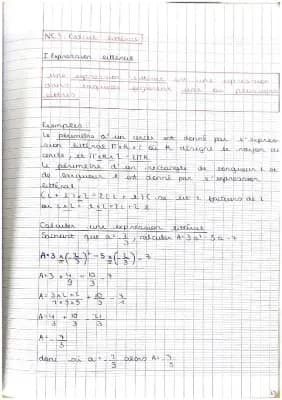 NC3: Calcul littéral
I Expression littéral
Une expression littéral est une expression
dans laquelle figurent une ou plusieurs
lettres
Exemples:
Le périmètre d'un cercle est donné par l'expres
sion littéral π×R×2 où R désigne le rayon du
cercle, et π×R×2 = 2πR
Le périmètre d'un rectangle de longueur L et
de largeur l est donné par l'expression
littéral
(L + l)×2 = 2(L + l)
ou L×2 + l×2 = 2L + 2l
Calculer une expression littéral
Sachant que a = -2/3, calculer A = 3a² - 5a - 7
A=3×(-2/3)² - 5×(-2/3) - 7
A=3×4/9 + 10/3 - 7
A= 3×2×2/1×3×3 + 10/3 - 7/1
A= 4/3 + 10/3 - 21/3
A= -7/3
donc si a = -2/3 alors A= -7/3